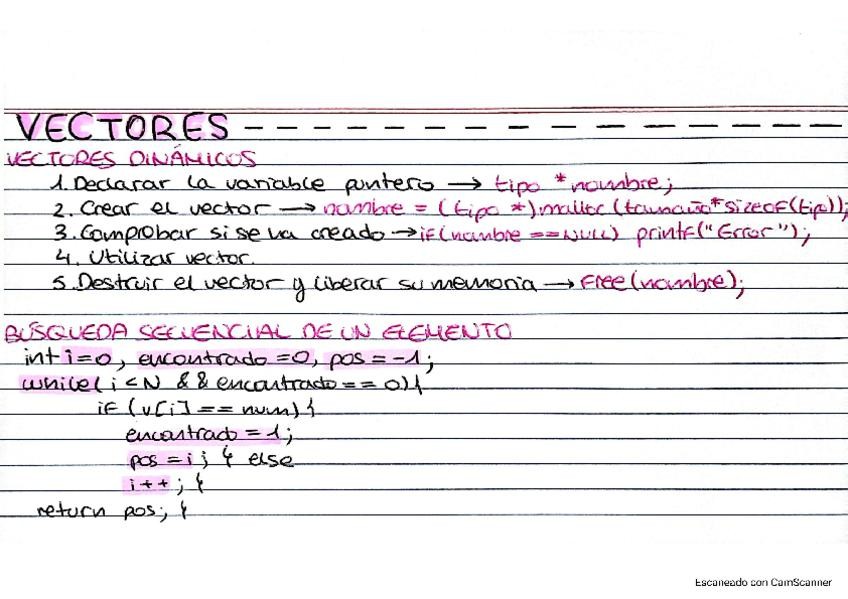 VECTORES
VECTORES DINÁMICOS
1. Declarar la variable puntero → tipo *nombre;
2. Crear el vector → nombre = (tipo *) malloc (tamaño*sizeof(tipo));
3. Comprobar si se va creado → if(nombre == NULL) printf("Error");
4. Utilizar vector.
5. Destruir el vector y liberar su memoria → Free(nombre);
BÚSQUEDA SECUENCIAL DE UN ELEMENTO
int i=0, encontrado =0, pos = -1;
while( i < N && encontrado == 0){
if (v[i] == num){
encontrado = 1;
pos = i; } else
i++; }
return pos; }
Escaneado con CamScanner